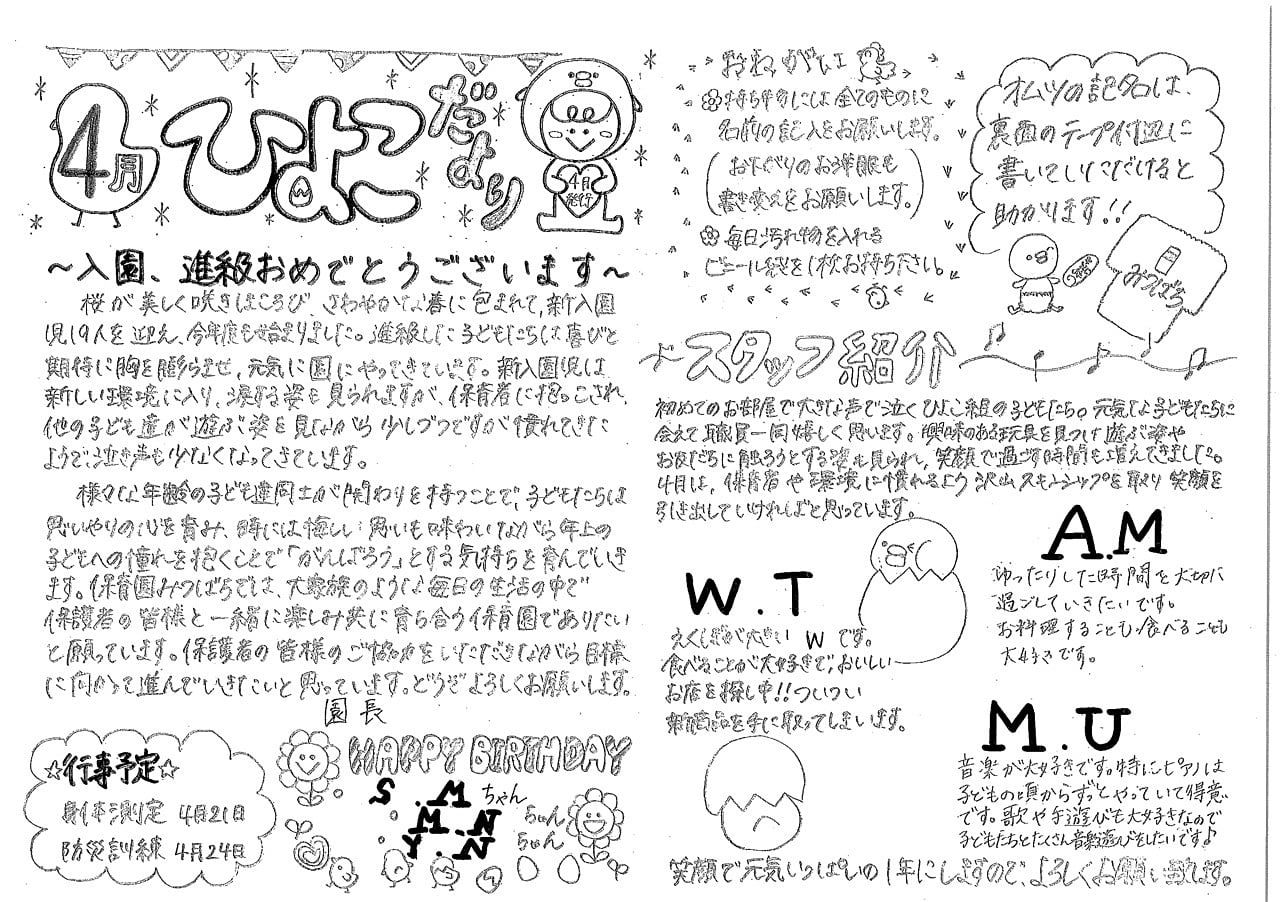 4月
ひよこだより
4月
発行
～入園、進級おめでとうございます～
桜が美しく咲きほころび、さわやかな春に包まれて、新入園
児19人を迎え、今年度も始まりました。進級した子どもたちは喜びと
期待に胸を膨らませ、元気に園にやってきています。新入園児は
新しい環境に入り、涙する姿も見られますが、保育者に抱っこされ、
他の子ども達が遊ぶ姿を見ながら少しづつですが慣れてきた
ようで泣き声も少なくなってきています。
様々な年齢の子ども達同士が関わりを持つことで、子どもたちは
思いやりの心を育み、時には悔しい思いも味わいながら年上の
子どもへの憧れを抱くことで「がんばろう」とする気持ちを育んでいき
ます。保育園みつばちでは、大家族のような毎日の生活の中で
保護者の皆様と一緒に楽しみ共に育ち合う保育園でありたい
と願っています。保護者の皆様のご協力をいただきながら目標
に向かって進んでいきたいと思っています。どうぞよろしくお願いします。
園長
☆行事予定☆
身体測定 4月21日
防災訓練 4月24日
HAPPY BIRTHDAY
S.Mちゃん
M.Nちゃん
Y.Nちゃん
おねがい
持ち物には全てのものに
名前の記入をお願いします。
(おさがりのお洋服も
書き変えをお願いします。)
毎日汚れ物を入れる
ビニール袋を1枚お持ち下さい。
オムツの記名は、
裏面のテープ付近に
書いていただけると
助かります!!
みつばち
♪スタッフ紹介
初めてのお部屋で大きな声で泣くひよこ組の子どもたち。元気な子どもたちに
会えて職員一同嬉しく思います。興味のある玩具を見つけ遊ぶ姿や
お友だちに触ろうとする姿も見られ、笑顔で過ごす時間も増えてきました。
4月は、保育者や環境に慣れるよう沢山スキンシップを取り笑顔を
引き出していければと思っています。
W.T
えくぼが大きいWです。
食べることが大好きで、おいしい
お店を探し中!!ついつい
新商品を手に取ってしまいます。
A.M
ゆったりした時間を大切に
過ごしていきたいです。
お料理することも、食べることも
大好きです。
M.U
音楽が大好きです。特にピアノは
子どもの頃からずっとやっていて得意
です。歌や手遊びも大好きなので
子どもたちとたくさん音楽遊びをしたいです♪
笑顔で元気いっぱいの1年にしますので、よろしくお願い致します。